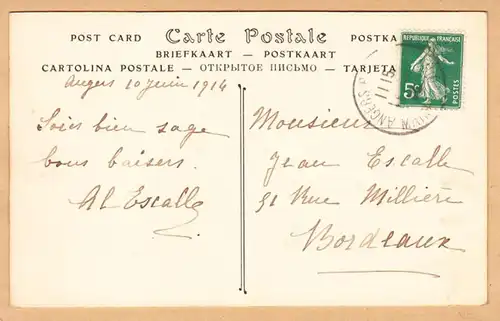 POST CARD Carte Postale POSTKA
BRIEFKAART — POSTKAART
CARTOLINA POSTALE — ОТКРЫТОЕ ПИСЬМО — TARJETA
REPUBLIQUE FRANÇAISE
5c
POSTES
ANGERS
Angers 10 juin 1914
Sois bien sage
bons baisers
Al Escalle
Monsieur
Jean Escalle
51 Rue Millière
Bordeaux